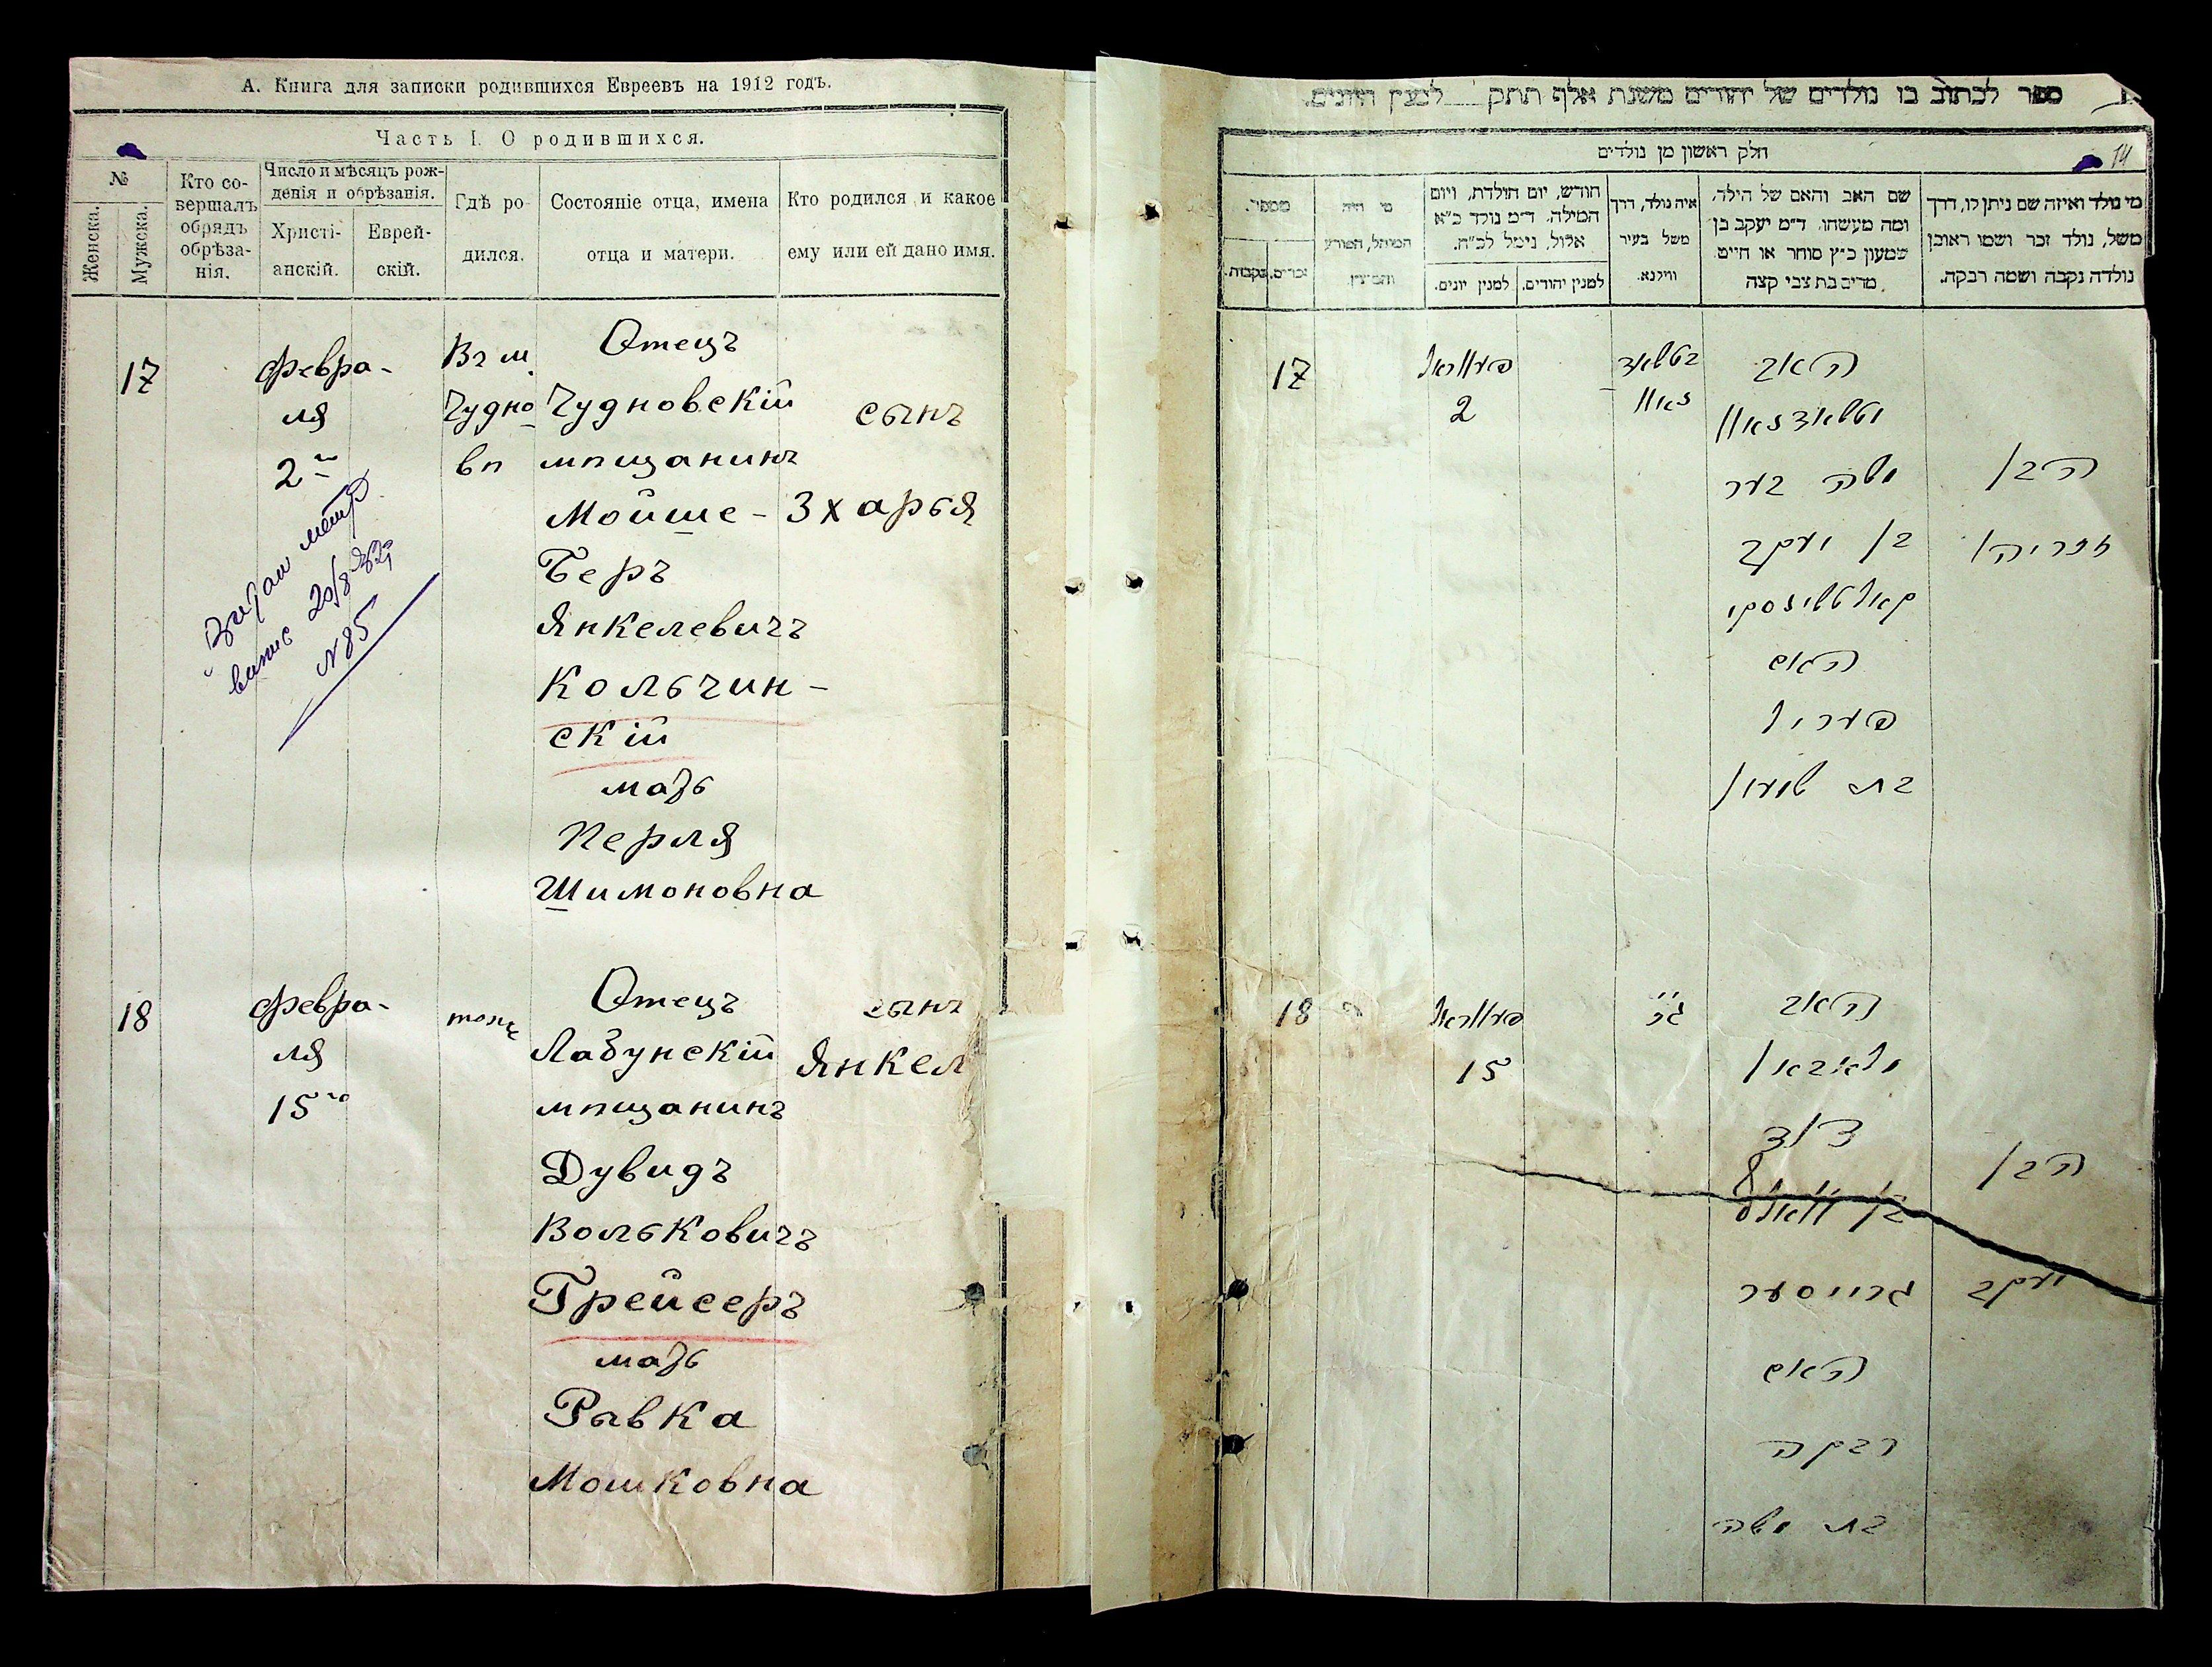 А. Книга для записки родившихся Евреевъ на 1912 годъ.
Часть I. О родившихся.
№
Женска.
Мужска.
Кто со-
вершалъ
обрядъ
обрѣза-
нія.
Число и мѣсяцъ рож-
денія и обрѣзанія.
Христі-
анскій.
Еврей-
скій.
Гдѣ ро-
дился.
Состояніе отца, имена
отца и матери.
Кто родился и какое
ему или ей дано имя.
17
Февра-
ля
2го
Въ м.
Чудно
вѣ
Отецъ
Чудновскій
мѣщанинъ
Мойше-
Беръ
Янкелевичъ
Кольчин-
скій
мать
Перля
Шимоновна
сынъ
Зхарья
N 85
18
Февра-
ля
15го
тоже
Отецъ
Лабунскій
мѣщанинъ
Дувидъ
Вольковичъ
Грейсеръ
мать
Рывка
Мошковна
сынъ
Янкел
ספר לכתוב בו נולדים של יהודים משנת אלף תתק למנין היונים.
חלק ראשון מן נולדים
14
מי נולד ואיזה שם ניתן לו, דרך
משל, נולד זכר ושמו ראובן
נולדה נקבה ושמה רבקה.
שם האב והאם של הילד,
ומה מעשהו. ד״מ יעקב בן
שמעון כ״ץ סוחר או חייט
מרים בת צבי קצה
איה נולד, דרך
משל בעיר
ווילנא.
חודש, יום הולדת, ויום
המילה. ד״מ נולד כ״א
אלול, נימל לכ״ח.
למנין יהודים.
למנין יונים.
מי היה
המוהל, הפורע
והמוצץ.
מספר.
זכרים.
נקבות.
17
פעווראל
2
האב
משה בער
בן יעקב
קאלטשינסקי
האם
פעריל
בת שמעון
הבן
זכריהו
18
פעווראל
15
האב
דוד
בן וואלף
גרייסער
האם
רבקה
בת משה
הבן
יעקב